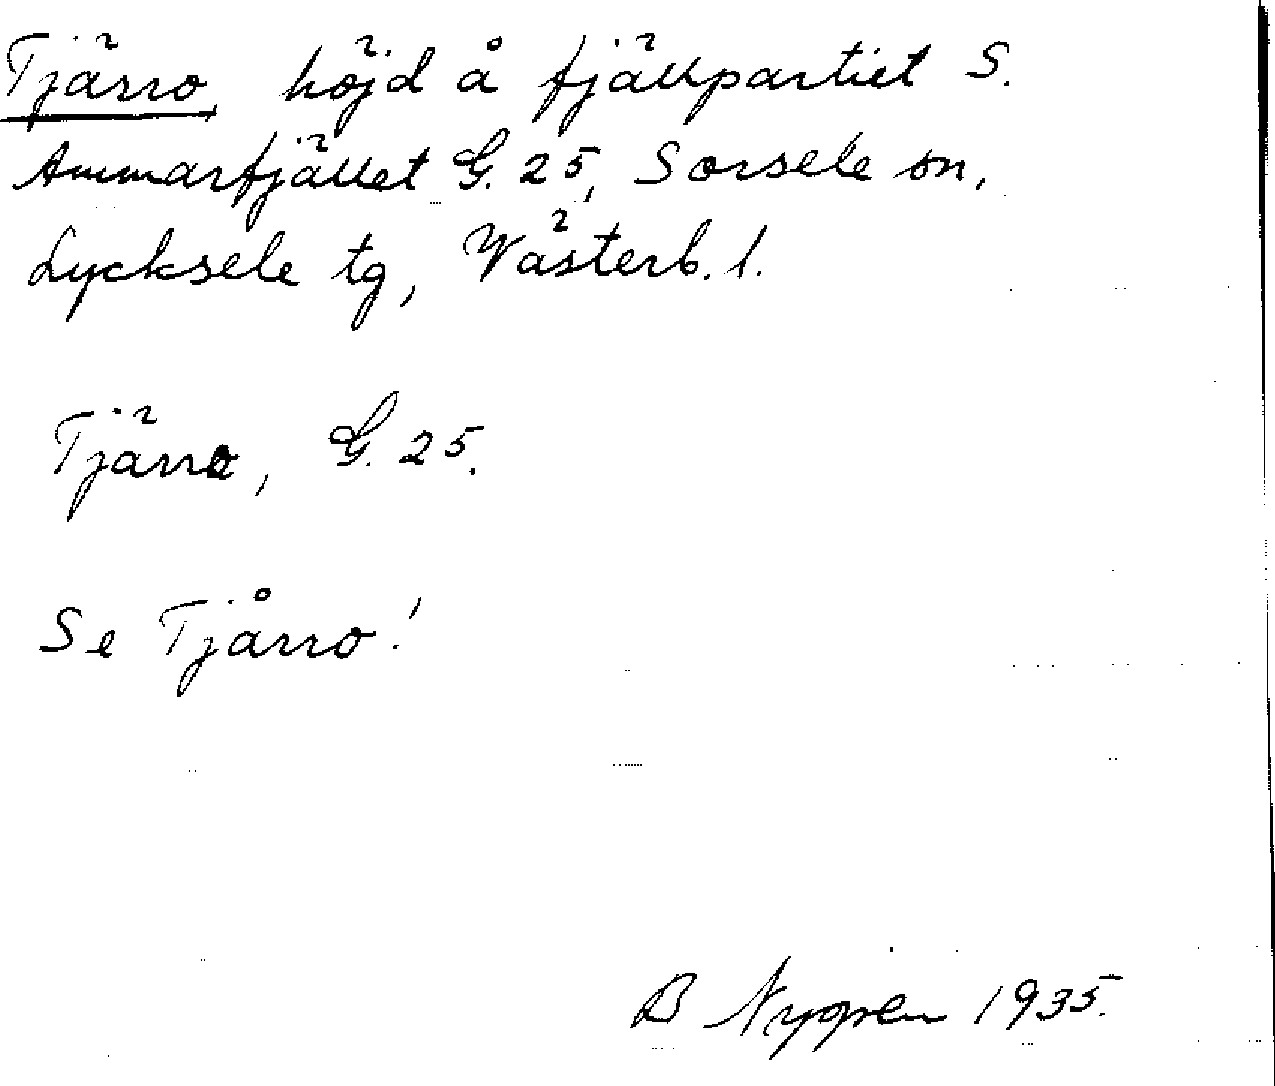 Tjärro, höjd å fjällpartiet S.
Ammarfjället G. 25, Sorsele sn,
Lycksele tg, Västerb. l.
Tjärro, G. 25.
Se Tjårro!
B Nygren 1935.